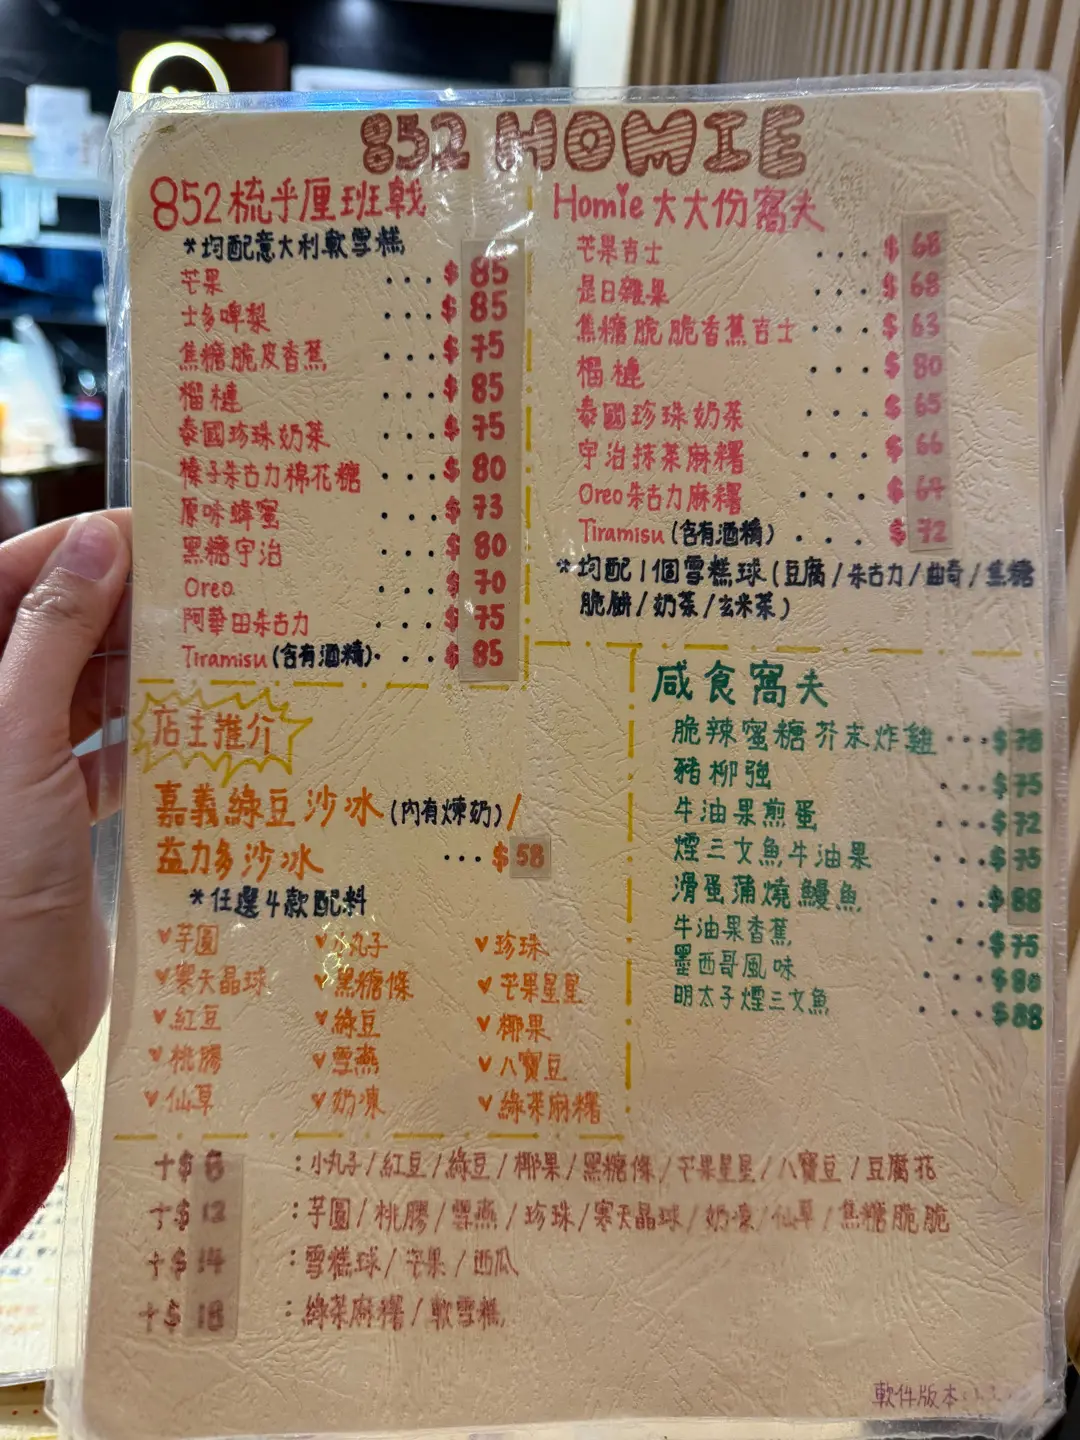 852 HOMIE
852梳乎厘班戟
*均配意大利軟雪糕
芒果 ...$ 85
士多啤梨 ...$ 85
焦糖脆皮香蕉 ...$ 75
榴槤 ...$ 85
泰國珍珠奶茶 ...$ 75
榛子朱古力棉花糖 ...$ 80
原味蜂蜜 ...$ 73
黑糖宇治 ...$ 80
Oreo ...$ 70
阿華田朱古力 ...$ 75
Tiramisu (含有酒精) ...$ 85
Homie大大份窩夫
芒果吉士 ...$ 68
是日雜果 ...$ 68
焦糖脆脆香蕉吉士 ...$ 63
榴槤 ...$ 80
泰國珍珠奶茶 ...$ 65
宇治抹茶麻糬 ...$ 66
Oreo朱古力麻糬 ...$
Tiramisu (含有酒精) ...$ 72
*均配1個雪糕球(豆腐/朱古力/曲奇/焦糖
脆餅/奶茶/玄米茶)
店主推介
嘉義綠豆沙冰(內有煉奶)/
益力多沙冰 ...$ 58
*任選4款配料
♥芋圓 ♥小丸子 ♥珍珠
♥寒天晶球 ♥黑糖條 ♥芒果星星
♥紅豆 ♥綠豆 ♥椰果
♥桃膠 ♥雪燕 ♥八寶豆
♥仙草 ♥奶凍 ♥綠茶麻糬
咸食窩夫
脆辣蜜糖芥末炸雞 ...$ 78
豬柳強 ...$ 75
牛油果煎蛋 ...$ 72
煙三文魚牛油果 ...$ 75
滑蛋蒲燒鰻魚 ...$ 88
牛油果香蕉 ...$75
墨西哥風味 ...$80
明太子煙三文魚 ...$88
+$ : 小丸子/紅豆/綠豆/椰果/黑糖條/芒果星星/八寶豆/豆腐花
+$ 12 : 芋圓/桃膠/雪燕/珍珠/寒天晶球/奶凍/仙草/焦糖脆脆
+$ 14 : 雪糕球/芒果/西瓜
+$ 18 : 綠茶麻糬/軟雪糕
軟件版本: